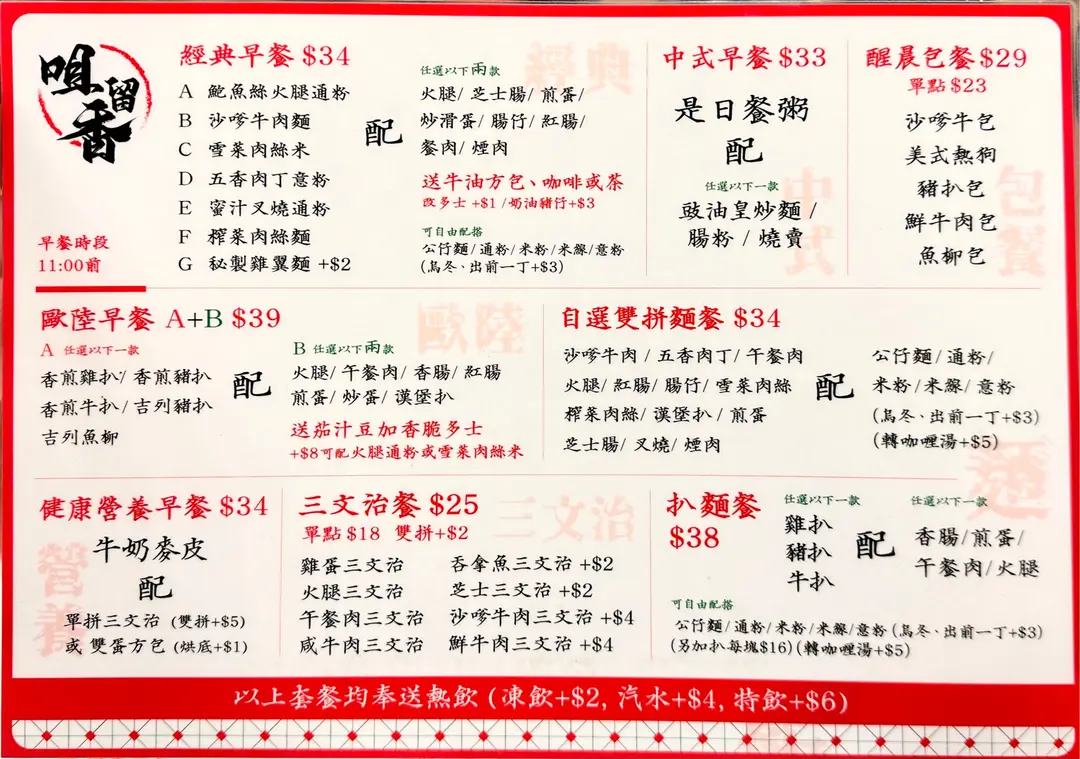 咀留香
早餐時段
11:00前
經典早餐 $34
A 鮑魚絲火腿通粉
B 沙嗲牛肉麵
C 雪菜肉絲米
D 五香肉丁意粉
E 蜜汁叉燒通粉
F 榨菜肉絲麵
G 秘製雞翼麵 +$2
配
任選以下兩款
火腿/ 芝士腸/ 煎蛋/
炒滑蛋/ 腸仔/ 紅腸/
餐肉/ 煙肉
送牛油方包、咖啡或茶
改多士 +$1 /奶油豬仔+$3
可自由配搭
公仔麵/通粉/米粉/米線/意粉
(烏冬、出前一丁+$3)
經典
中式早餐 $33
是日餐粥
配
任選以下一款
豉油皇炒麵 /
腸粉 / 燒賣
中式
醒晨包餐 $29
單點 $23
沙嗲牛包
美式熱狗
豬扒包
鮮牛肉包
魚柳包
包餐
歐陸早餐 A+B $39
A 任選以下一款
香煎雞扒/ 香煎豬扒
香煎牛扒/ 吉列豬扒
吉列魚柳
配
B 任選以下兩款
火腿/ 午餐肉/ 香腸/ 紅腸
煎蛋/ 炒蛋/ 漢堡扒
送茄汁豆加香脆多士
+$8可配火腿通粉或雪菜肉絲米
歐陸
自選雙拼麵餐 $34
沙嗲牛肉 / 五香肉丁/ 午餐肉
火腿/ 紅腸/ 腸仔/ 雪菜肉絲
榨菜肉絲/ 漢堡扒 / 煎蛋
芝士腸/ 叉燒/ 煙肉
配
公仔麵/ 通粉/
米粉/米線/ 意粉
(烏冬、出前一丁+$3)
(轉咖喱湯+$5)
麵
健康營養早餐 $34
牛奶麥皮
配
單拼三文治 (雙拼+$5)
或 雙蛋方包 (烘底+$1)
營養
三文治餐 $25
單點 $18 雙拼+$2
雞蛋三文治
火腿三文治
午餐肉三文治
咸牛肉三文治
吞拿魚三文治 +$2
芝士三文治 +$2
沙嗲牛肉三文治 +$4
鮮牛肉三文治 +$4
三文治
扒麵餐
$38
任選以下一款
雞扒
豬扒
牛扒
配
任選以下一款
香腸/煎蛋/
午餐肉/火腿
可自由配搭
公仔麵/通粉/米粉/米線/意粉 (烏冬、出前一丁+$3)
(另加扒每塊$16)(轉咖喱湯+$5)
以上套餐均奉送熱飲 (凍飲+$2, 汽水+$4, 特飲+$6)